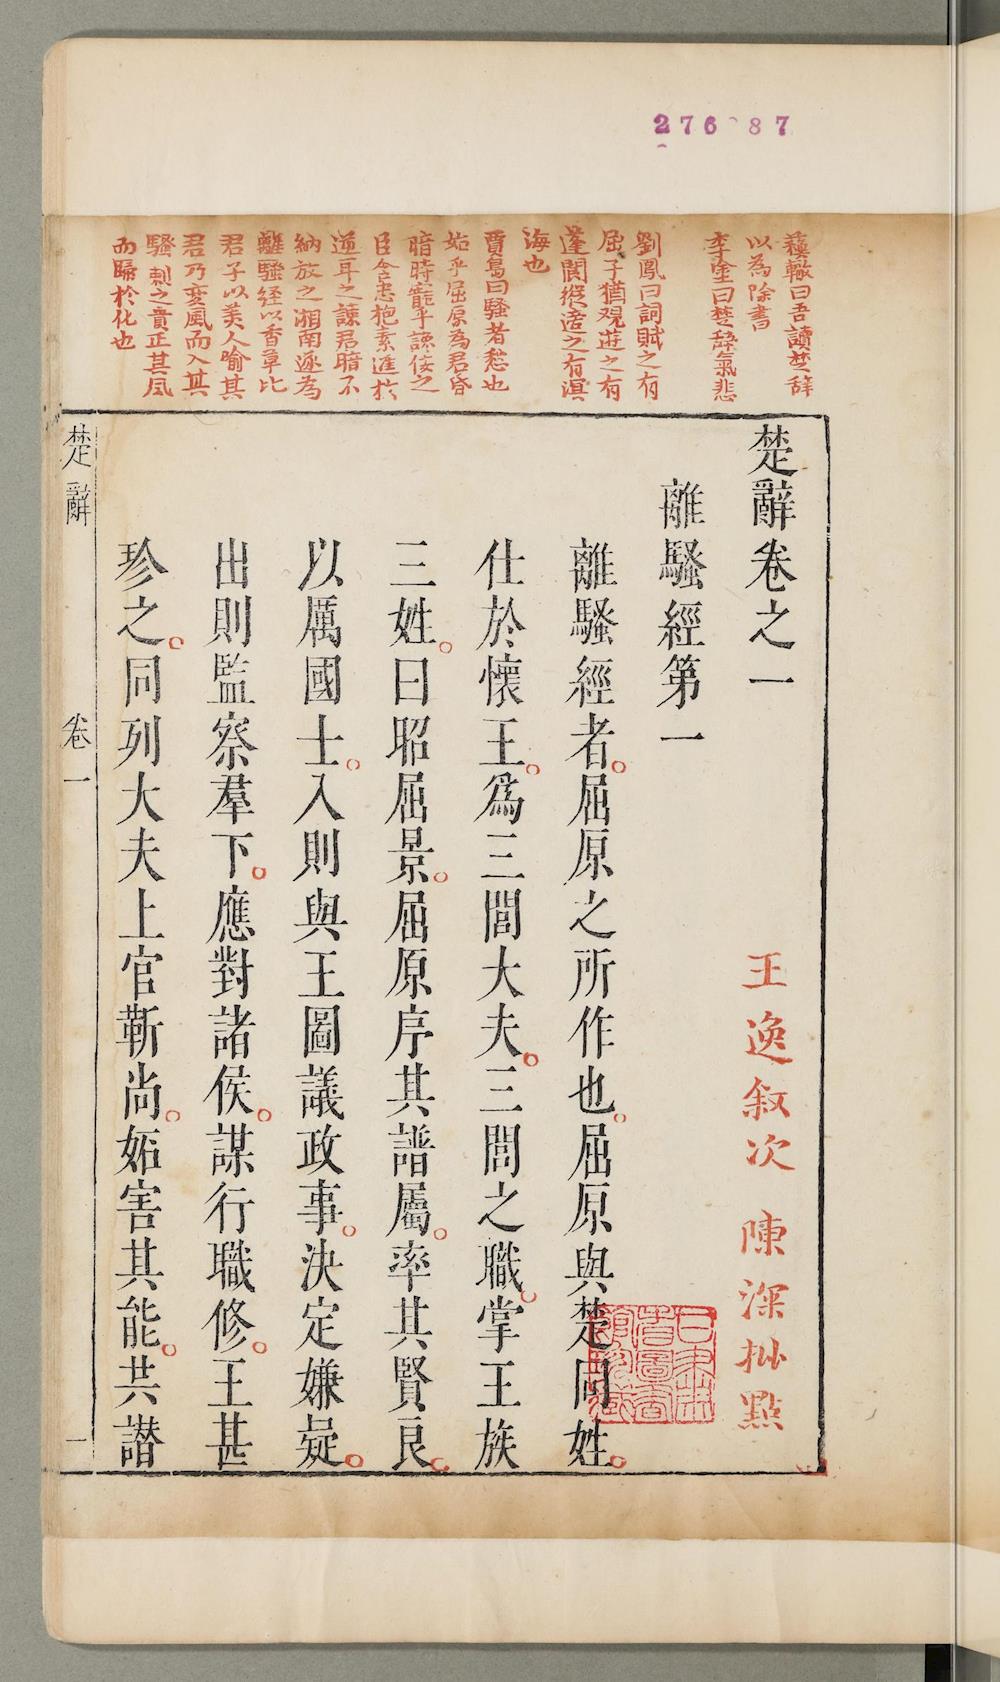 276087
蘇轍曰吾讀楚辭
以為除書
李塗曰楚辭氣悲
劉鳳曰詞賦之有
屈子猶觀遊之有
蓬閬縱適之有溟
海也
賈島曰騷者愁也
始乎屈原為君昏
暗時寵乎諛佞之
臣含忠抱素進於
道耳之諫君暗不
納放之湘南遂為
離騷経以香草比
君子以美人喻其
君乃変風而入其
騷刺之貴正其風
而歸於化也
楚辭卷之一
王逸叙次 陳深批點
離騷經第一
離騷經者。屈原之所作也。屈原與楚同姓。
仕於懷王。爲三閭大夫。三閭之職。掌王族
三姓。曰昭屈景。屈原序其譜屬。率其賢良。
以厲國士。入則與王圖議政事。決定嫌疑。
出則監察羣下。應對諸侯。謀行職修。王甚
珍之。同列大夫上官靳尚。妬害其能。共譖
楚辭 卷一 一